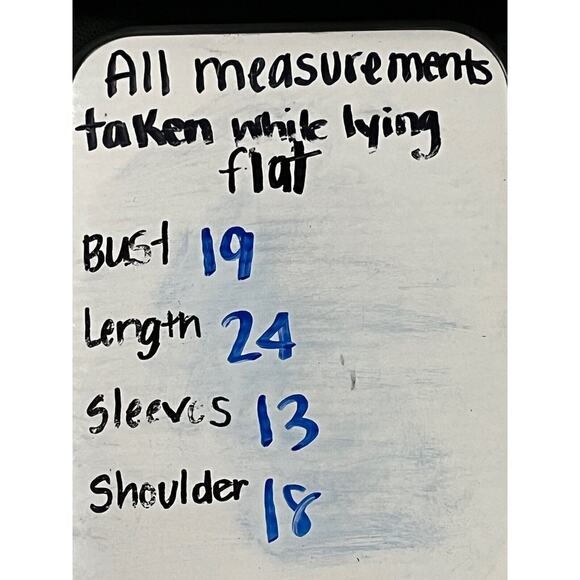 All measurements
taken while lying
flat
Bust 19
Length 24
Sleeves 13
Shoulder 18